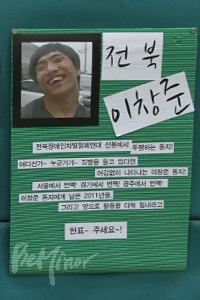 전북
이창준
전북장애인차별철폐연대 선봉에서 투쟁하는 동지!
어디선가~ 누군가가~ 깃발을 들고 있다면
어김없이 나타나는 이창준 동지!
서울에서 번쩍! 경기에서 번쩍! 광주에서 번쩍!
이창준 동지에게 남은 2011년을
그리고 앞으로 활동을 더욱 힘내라고
한표~ 주세요~!
BeMinor